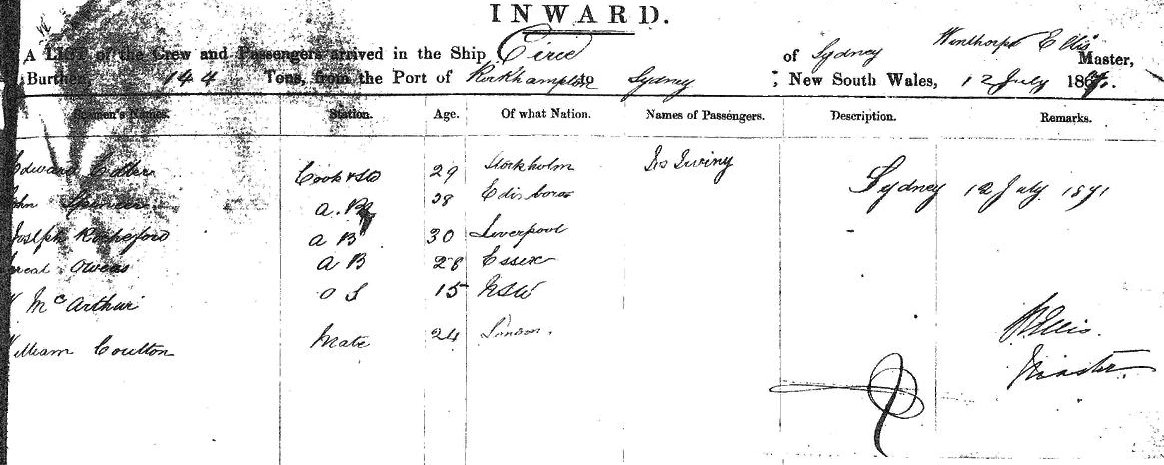 INWARD.
A LIST of the Crew and Passengers arrived in the Ship Circe of Sydney Winthorp Ellis Master,
Burthen, 144 Tons, from the Port of Rockhampton to Sydney ; New South Wales, 12 July 1871.
Seamen's Names. Station. Age. Of what Nation. Names of Passengers. Description. Remarks.
Edward Cook & St'd 29 Stockholm Irviny Sydney 12 July 1871
John Spencer A.B 38 Edinboro
Joseph Rocheford A B 30 Liverpool
Owens A B 28 Essex
McArthur O S 15 NSW
William Coulton Mate 24 London.
W Ellis.
Master.